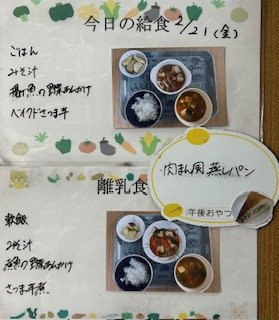 今日の給食 2/21(金)
ごはん
みそ汁
揚げ魚の野菜あんかけ
ベイクドさつま芋
肉まん風蒸しパン
午後おやつ
離乳食
軟飯
みそ汁
煮魚の野菜あんかけ
さつま芋煮